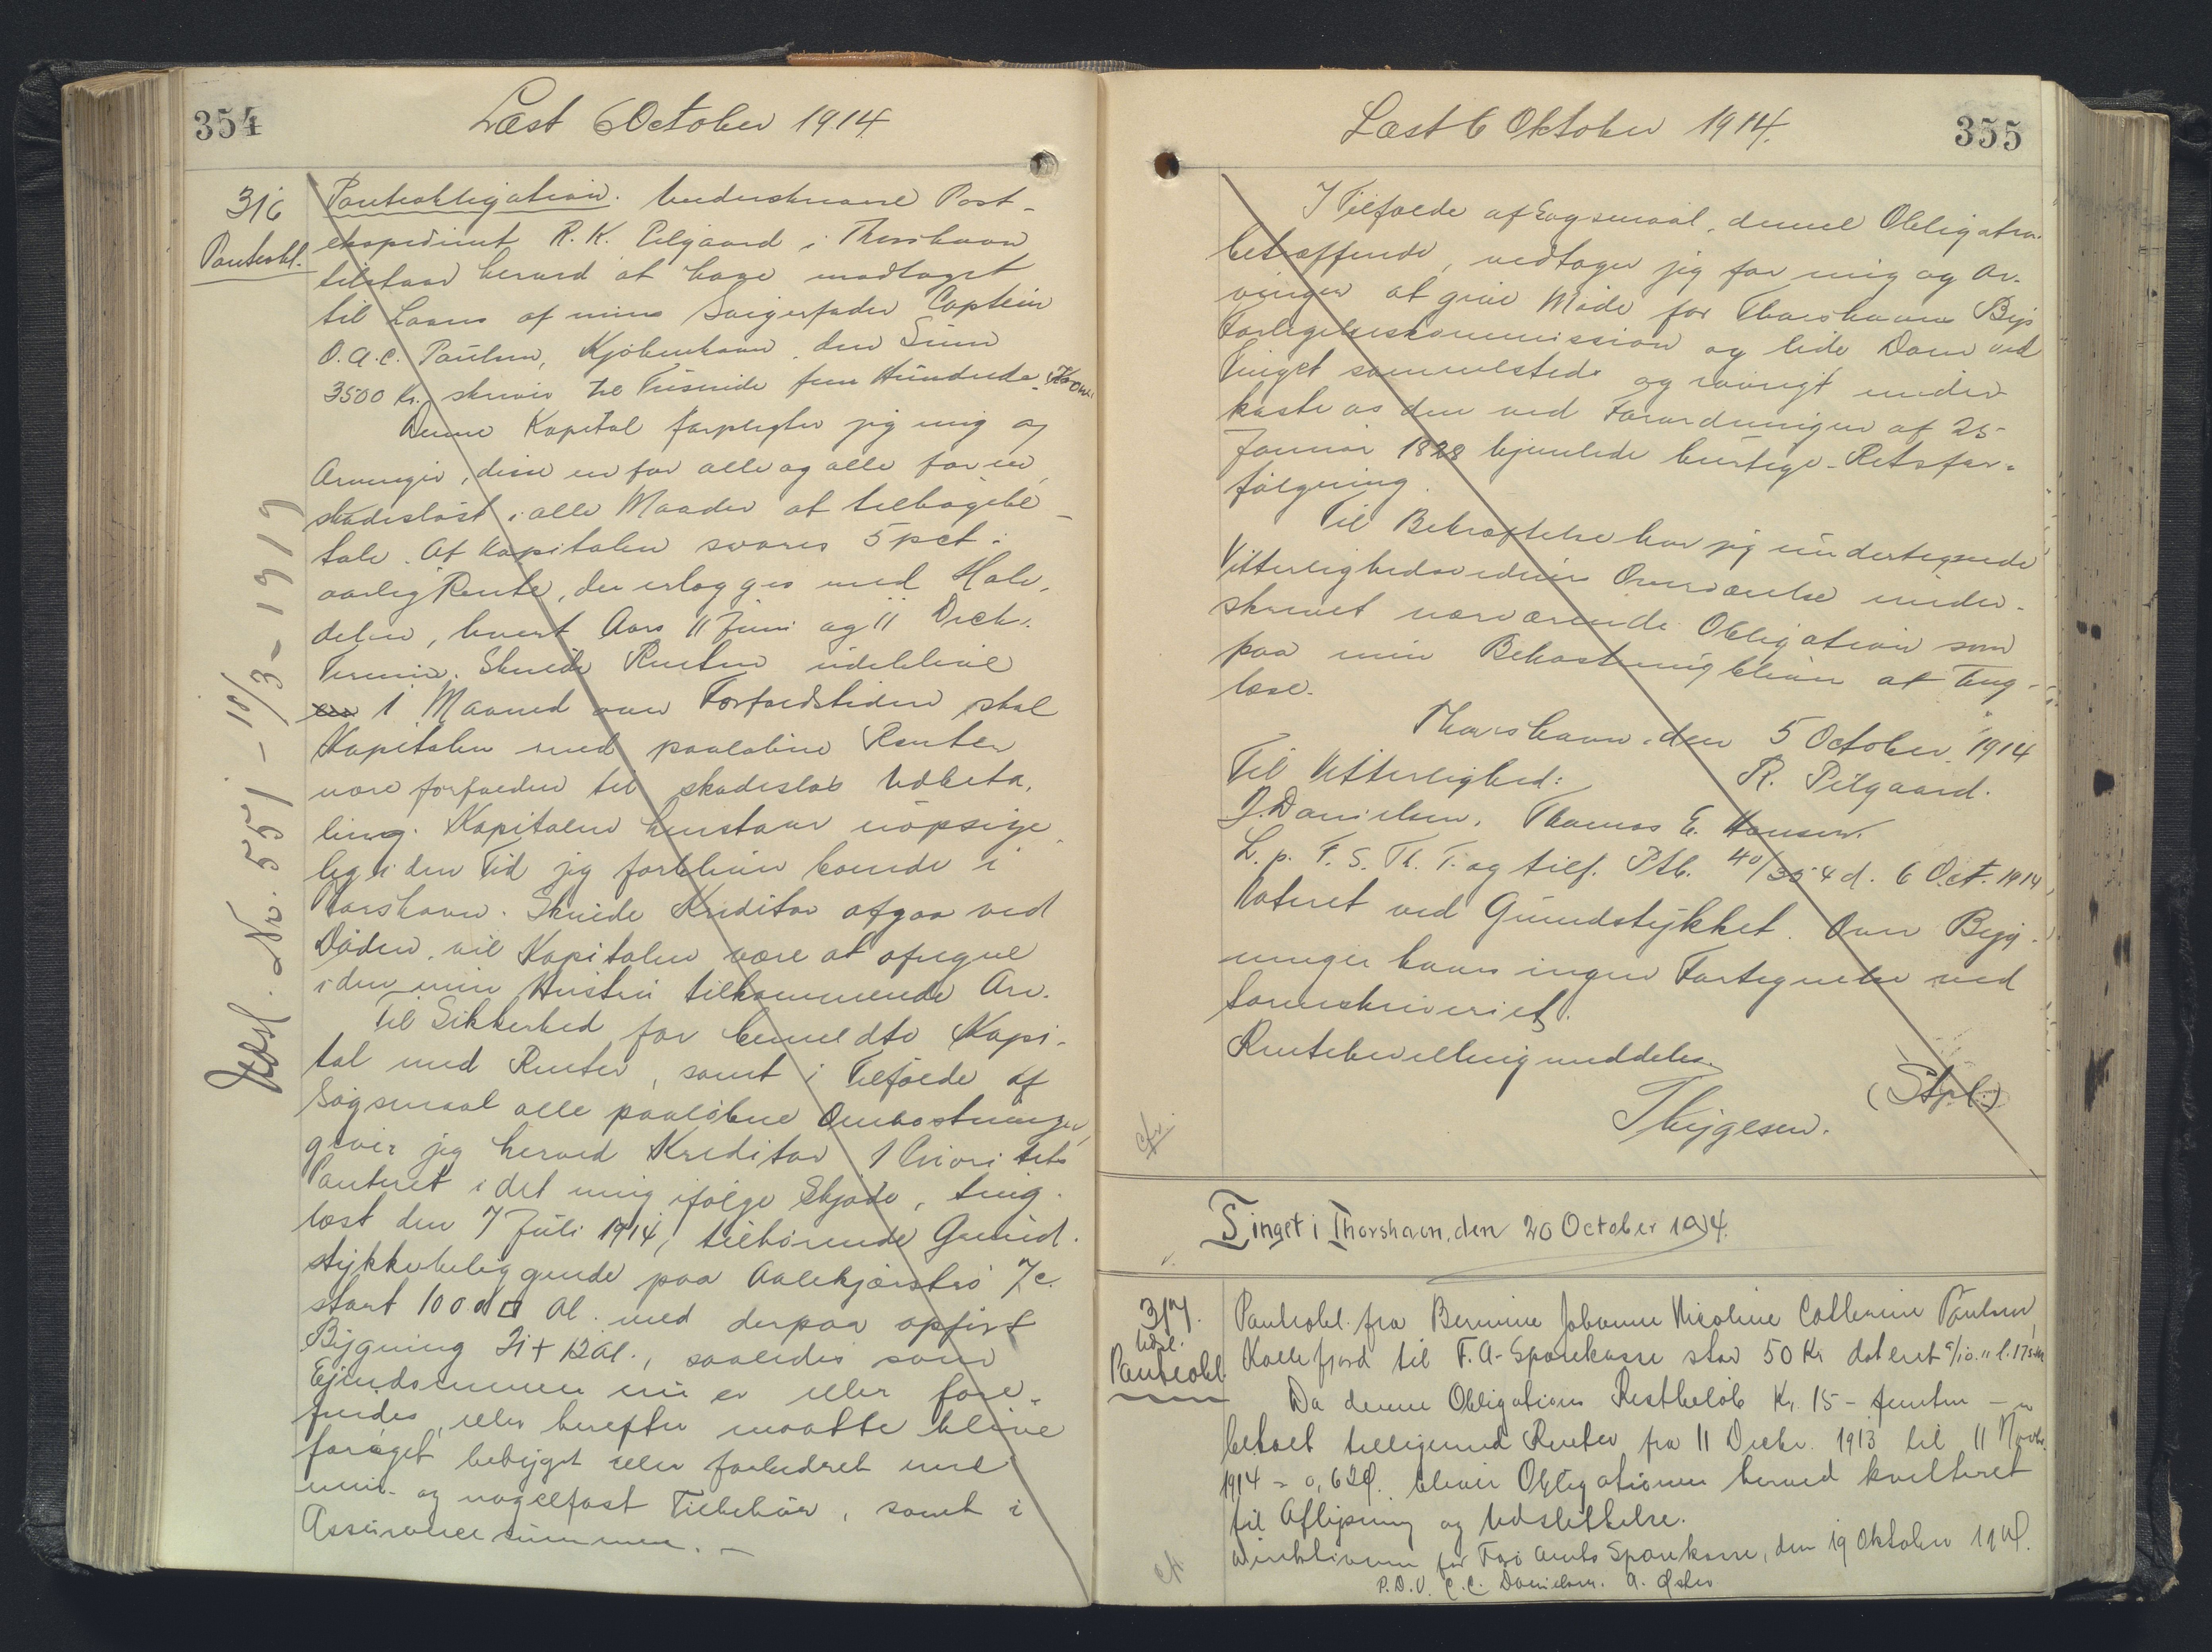 354
Læst 6 October 1914
316
Panteobl.
Udsl. Nr. 551 - 10/3 - 1919
Panteobligation. Underskrevne Post-
ekspedient R. K. Pilgaard i Thorshavn
tilstaar herved at have modtaget
til Laans af min Svigerfader Captein
O. A. C. Paulsen, Kjøbenhavn, den Sum
3500 Kr., skriver Tre Tusinde fem Hundrede Kroner
Denne Kapital forpligter jeg mig og
Arvinger, disse en for alle og alle for en,
skadesløst i alle Maader at tilbagebe-
tale. Af Kapitalen svares 5 pct.
aarlig Rente, der erlægges med Halv-
delen, hvert Aars 11 Juni og 11 Decb.
Termin. Skulde Renten udeblive
1 Maaned over Forfaldstiden skal
Kapitalen med paaløbne Renter
være forfalden til skadesløs Udbeta-
ling. Kapitalen henstaar uopsige-
lig i den Tid jeg forbliver boende i
Thorshavn. Skulde Kreditor afgaa ved
Døden, vil Kapitalen være at afregne
i den min Hustru tilkommende Arv.
Til Sikkerhed for bemeldte Kapi-
tal med Renter, samt i Tilfælde af
Søgsmaal alle paaløbne Omkostninger,
giver jeg herved Kreditor 1 Prioritets
Panteret i det mig ifølge Skjøde, ting-
læst den 7 Juli 1914, tilhørende Grund-
stykke beliggende paa Aalekjærstrø 7c.
stort 1000 □ Al. med derpaa opført
Bygning 21 + 12 Al., saaledes som
Ejendommen nu er eller fore-
findes, eller herefter maatte blive
forøget bebygget eller forbedret med
mur- og nagelfast Tilbehør, samt i
Assurancesummen. -
355
Læst 6 Oktober 1914.
I Tilfælde af Søgsmaal, denne Obligation
betræffende, vedtager jeg for mig og Ar-
vinger at give Møde for Thorshavns Bys
Forligelseskommission og lide Dom ved
Tinget sammesteds og iøvrigt under-
kaste os den ved Forordningen af 25
Januar 1828 hjemlede hurtige Retsfor-
følgning.
Til Bekræftelse har jeg undertegnede
Vitterlighedsvidners Overværelse under-
skrevet nærværende Obligation som
paa min Bekostning bliver at ting-
læse.
Thorshavn, den 5 October 1914
Til Vitterlighed: R. Pilgaard.
J. Danielsen. Thomas E. Hansen.
L. p. F. S. Th. T. og tilf. Ptb. 40/354 d. 6 Oct. 1914
Noteret ved Grundstykket. Over Byg-
ninger haves ingen Fortegnelse ved
Sorenskriveriet.
Rentebevilling meddeles.
Thygesen. (Stpl.)
cfr.
Tinget i Thorshavn, den 20 October 1914.
v.
317.
Udsl.
Panteobl.
Panteobl. fra Bernine Johanne Nicoline Cathrine Paulsen,
Kollefjord til F. A. Sparekasse stor 50 Kr dateret
Da denne Obligations Restbeløb Kr. 15 - femten - er
betalt tilligemed Renter fra 11 Decbr. 1913 til 11 Novbr.
1914 = 0,62 Ø. bliver Obligationen herved kvitteret
til Aflysning og Udslettelse.
Direktionen for Færø Amts Sparekasse, den 19 Oktober 1914.
P.D.V. C. C. Danielsen. A.
cfr.